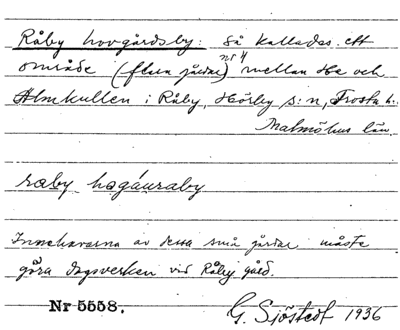 Råby hovgårdsby: så kallades ett
område (flera gårdar) nr 4 mellan He och
Almkullen i Råby, Hörby s:n, Frosta h.
Malmöhus län.
raby hagáuraby
Innehavarna av dessa små gårdar måste
göra dagsverken vid Råby gård.
Nr 5558. G. Sjöstedt 1936